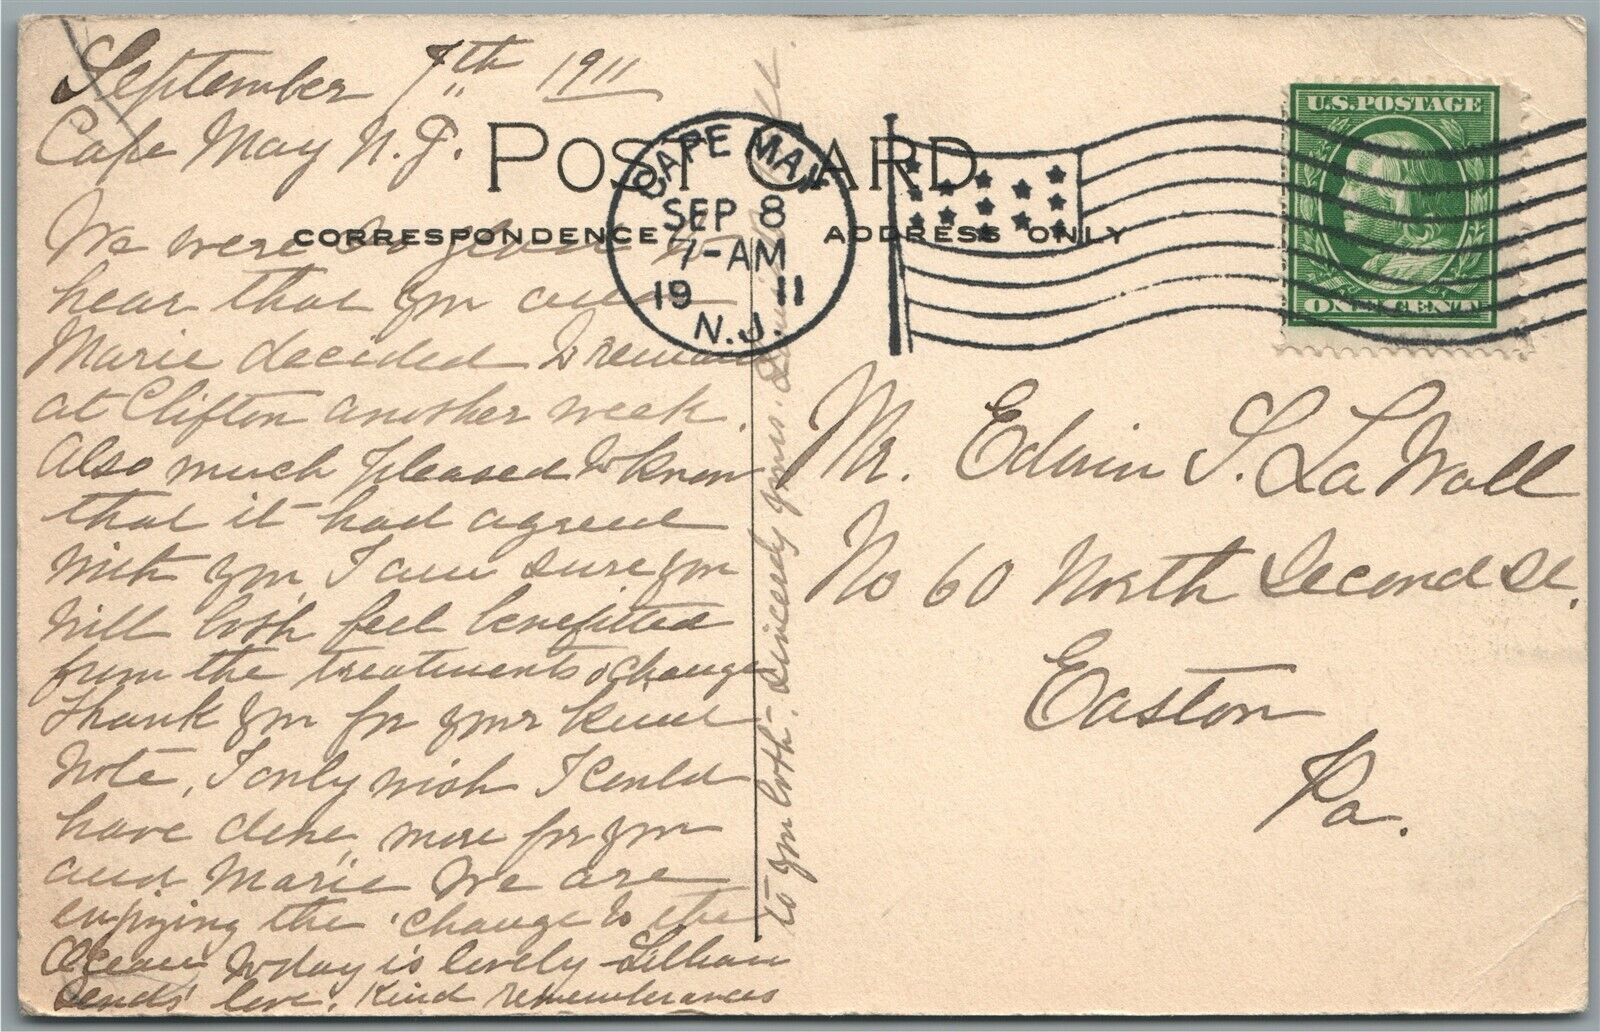 September 7th 1911
Cape May N. J.
POST CARD
CORRESPONDENCE
ADDRESS ONLY
CAPE MAY
SEP 8
7-AM
19 11
N.J.
U.S. POSTAGE
ONE CENT
We were so glad to
hear that you and
Marie decided to remain
at Clifton another week.
Also much pleased to know
that it had agreed
with you, I am sure you
will both feel benefitted
from the treatments & change
Thank you for your kind
Note, I only wish I could
have done, more for you
and Marie We are
enjoying the change to the
Ocean today is lovely - Lillian
sends love. Kind remembrances
to you both - Sincerely yours.
Mr. Edwin S. LaWall
No 60 North Second St.
Easton
Pa.